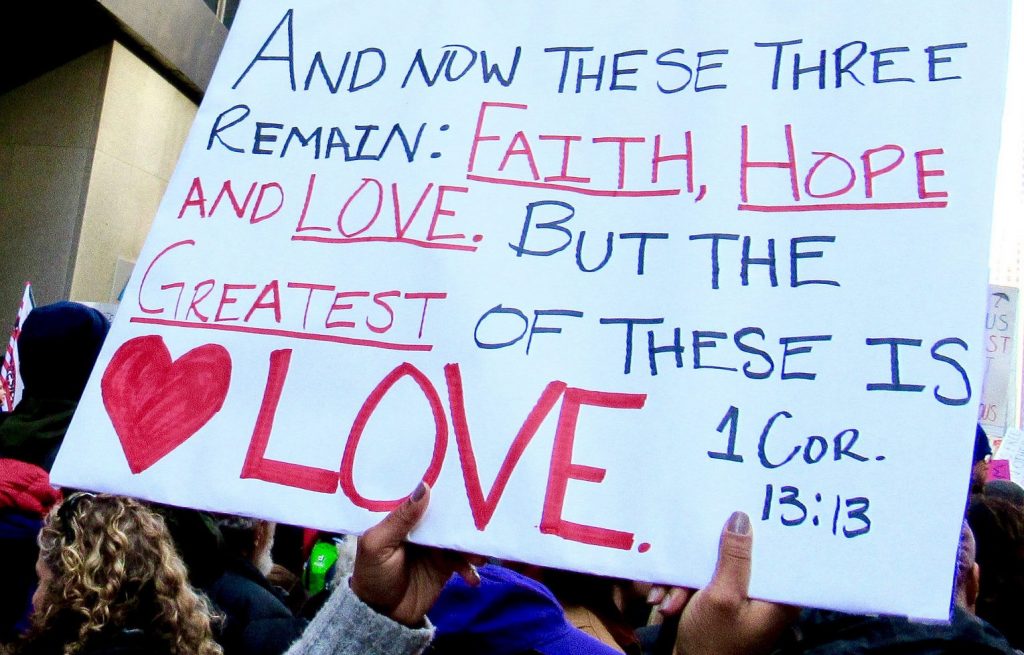 AND NOW THESE THREE
REMAIN: FAITH, HOPE
AND LOVE. BUT THE
GREATEST OF THESE IS
LOVE.
1 COR.
13:13
US
ST
OUS